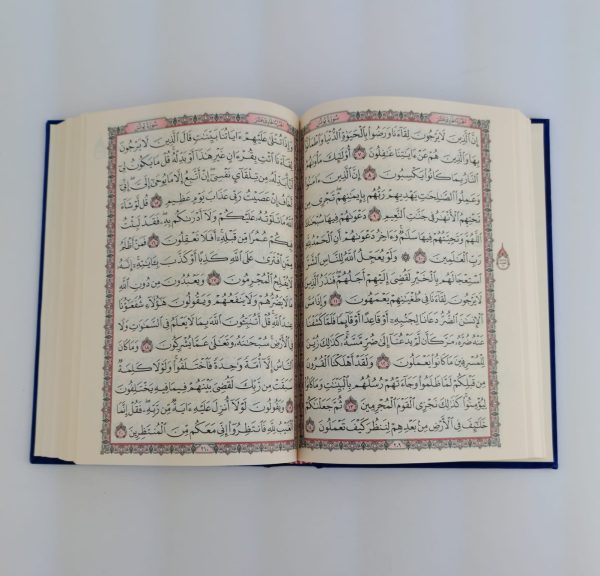 الجزء الحادي عشر
سورة يونس
إِنَّ الَّذِينَ لَا يَرْجُونَ لِقَاءَنَا وَرَضُوا بِالْحَيَوٰةِ الدُّنْيَا وَاطْمَأَنُّوا
بِهَا وَالَّذِينَ هُمْ عَنْ ءَايَٰتِنَا غَٰفِلُونَ ٧ أُولَٰئِكَ مَأْوَىٰهُمُ
النَّارُ بِمَا كَانُوا يَكْسِبُونَ ٨ إِنَّ الَّذِينَ ءَامَنُوا
وَعَمِلُوا الصَّٰلِحَٰتِ يَهْدِيهِمْ رَبُّهُم بِإِيمَٰنِهِمْ تَجْرِي مِن
تَحْتِهِمُ الْأَنْهَٰرُ فِي جَنَّٰتِ النَّعِيمِ ٩ دَعْوَىٰهُمْ فِيهَا سُبْحَٰنَكَ
اللَّهُمَّ وَتَحِيَّتُهُمْ فِيهَا سَلَٰمٌ وَءَاخِرُ دَعْوَىٰهُمْ أَنِ الْحَمْدُ لِلَّهِ
رَبِّ الْعَٰلَمِينَ ١٠ وَلَوْ يُعَجِّلُ اللَّهُ لِلنَّاسِ الشَّرَّ
اسْتِعْجَالَهُم بِالْخَيْرِ لَقُضِيَ إِلَيْهِمْ أَجَلُهُمْ فَنَذَرُ الَّذِينَ
لَا يَرْجُونَ لِقَاءَنَا فِي طُغْيَٰنِهِمْ يَعْمَهُونَ ١١ وَإِذَا مَسَّ
الْإِنسَٰنَ الضُّرُّ دَعَانَا لِجَنبِهِ أَوْ قَاعِدًا أَوْ قَائِمًا فَلَمَّا كَشَفْنَا
عَنْهُ ضُرَّهُ مَرَّ كَأَن لَّمْ يَدْعُنَا إِلَىٰ ضُرٍّ مَّسَّهُ كَذَٰلِكَ زُيِّنَ
لِلْمُسْرِفِينَ مَا كَانُوا يَعْمَلُونَ ١٢ وَلَقَدْ أَهْلَكْنَا الْقُرُونَ
مِن قَبْلِكُمْ لَمَّا ظَلَمُوا وَجَاءَتْهُمْ رُسُلُهُم بِالْبَيِّنَٰتِ وَمَا كَانُوا
لِيُؤْمِنُوا كَذَٰلِكَ نَجْزِي الْقَوْمَ الْمُجْرِمِينَ ١٣ ثُمَّ جَعَلْنَٰكُمْ
خَلَٰئِفَ فِي الْأَرْضِ مِن بَعْدِهِمْ لِنَنظُرَ كَيْفَ تَعْمَلُونَ ١٤
الجزء الحادي عشر
سورة يونس
وَإِذَا تُتْلَىٰ عَلَيْهِمْ ءَايَاتُنَا بَيِّنَٰتٍ قَالَ الَّذِينَ لَا يَرْجُونَ
لِقَاءَنَا ائْتِ بِقُرْءَانٍ غَيْرِ هَٰذَا أَوْ بَدِّلْهُ قُلْ مَا يَكُونُ لِي
أَنْ أُبَدِّلَهُ مِن تِلْقَائِ نَفْسِي إِنْ أَتَّبِعُ إِلَّا مَا يُوحَىٰ إِلَيَّ إِنِّي
أَخَافُ إِنْ عَصَيْتُ رَبِّي عَذَابَ يَوْمٍ عَظِيمٍ ١٥ قُل لَّوْ شَاءَ
اللَّهُ مَا تَلَوْتُهُ عَلَيْكُمْ وَلَا أَدْرَىٰكُم بِهِ فَقَدْ لَبِثْتُ
فِيكُمْ عُمُرًا مِّن قَبْلِهِ أَفَلَا تَعْقِلُونَ ١٦ فَمَنْ أَظْلَمُ
مِمَّنِ افْتَرَىٰ عَلَى اللَّهِ كَذِبًا أَوْ كَذَّبَ بِـَٔايَٰتِهِ إِنَّهُ
لَا يُفْلِحُ الْمُجْرِمُونَ ١٧ وَيَعْبُدُونَ مِن دُونِ اللَّهِ
مَا لَا يَضُرُّهُمْ وَلَا يَنفَعُهُمْ وَيَقُولُونَ هَٰؤُلَاءِ شُفَعَٰؤُنَا
عِندَ اللَّهِ قُلْ أَتُنَبِّـُٔونَ اللَّهَ بِمَا لَا يَعْلَمُ فِي السَّمَٰوَٰتِ وَلَا
فِي الْأَرْضِ سُبْحَٰنَهُ وَتَعَٰلَىٰ عَمَّا يُشْرِكُونَ ١٨ وَمَا كَانَ
النَّاسُ إِلَّا أُمَّةً وَٰحِدَةً فَاخْتَلَفُوا وَلَوْلَا كَلِمَةٌ
سَبَقَتْ مِن رَّبِّكَ لَقُضِيَ بَيْنَهُمْ فِيمَا فِيهِ يَخْتَلِفُونَ
١٩ وَيَقُولُونَ لَوْلَا أُنزِلَ عَلَيْهِ ءَايَةٌ مِّن رَّبِّهِ فَقُلْ إِنَّمَا
الْغَيْبُ لِلَّهِ فَانتَظِرُوا إِنِّي مَعَكُم مِّنَ الْمُنتَظِرِينَ ٢٠